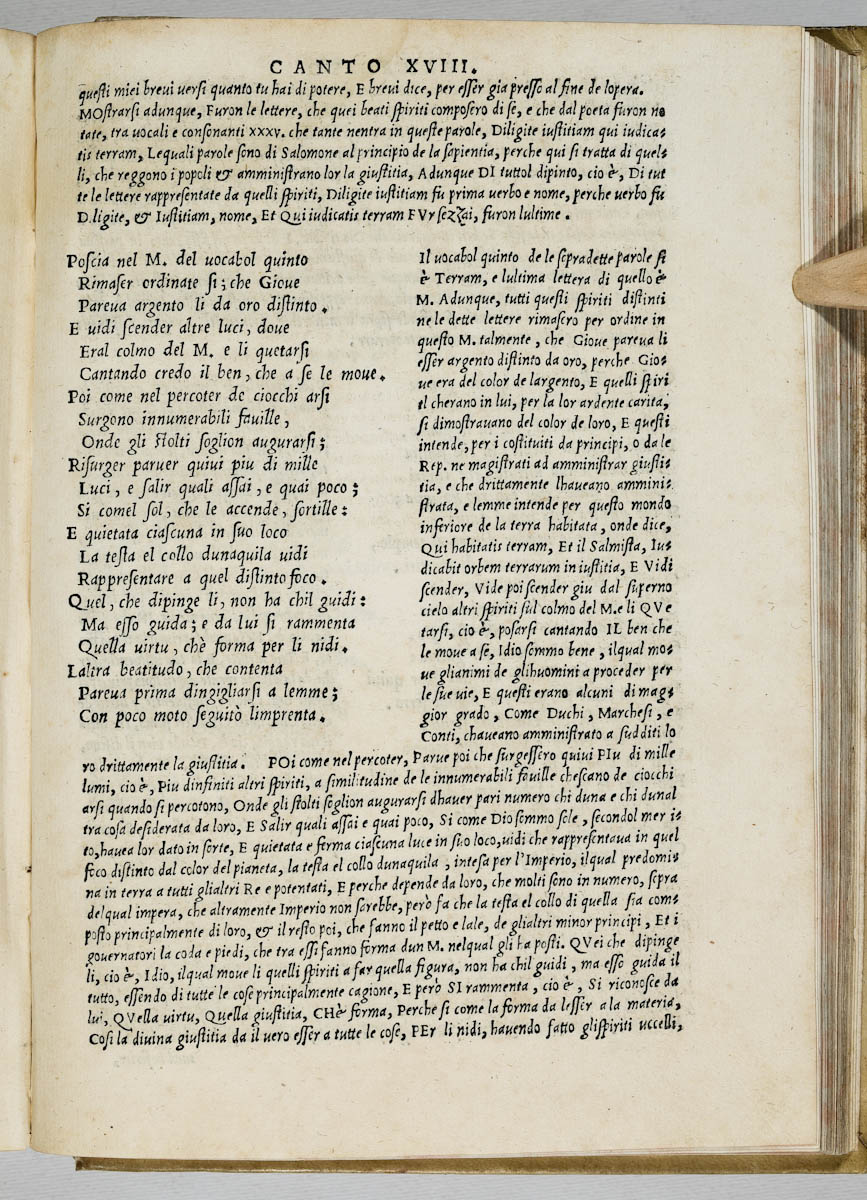 CANTO XVIII.
questi miei brevi uersi quanto tu hai di potere, E brevi dice, per esser gia presso al fine de lopera.
MOstrarsi adunque, Furon le lettere, che quei beati spiriti composero di se, e che dal poeta furon no
tate, tra uocali e consonanti xxxv. che tante nentra in queste parole, Diligite iustitiam qui iudica-
tis terram, Lequali parole sono di Salomone al principio de la sapientia, perche qui si tratta di quel-
li, che reggono i popoli & amministrano lor la giustitia, Adunque DI tuttol dipinto, cio è, Di tut
te le lettere rappresentate da quelli spiriti, Diligite iustitiam fu prima uerbo e nome, perche uerbo fu
D.ligite, & Iustitiam, nome, Et Qui iudicatis terram FVr sezzai, furon lultime.
Poscia nel M. del uocabol quinto
Rimaser ordinate si; che Gioue
Pareua argento li da oro distinto.
E uidi scender altre luci, doue
Eral colmo del M. e li quetarsi
Cantando credo il ben, che a se le moue.
Poi come nel percoter de ciocchi arsi
Surgono innumerabili fauille,
Onde gli stolti soglion augurarsi;
Risurger paruer quiui piu di mille
Luci, e salir quali assai, e quai poco;
Si comel sol, che le accende, sortille:
E quietata ciascuna in suo loco
La testa el collo dunaquila uidi
Rappresentare a quel distinto foco.
Quel, che dipinge li, non ha chil guidi:
Ma esso guida; e da lui si rammenta
Quella uirtu, chè forma per li nidi.
Laltra beatitudo, che contenta
Pareua prima dingigliarsi a lemme;
Con poco moto seguitò limprenta.
Il uocabol quinto de le sopradette parole si
è Terram, e lultima lettera di quello è
M. Adunque, tutti questi spiriti distinti
ne le dette lettere rimasero per ordine in
questo M. talmente, che Gioue pareua li
esser argento distinto da oro, perche Gio-
ue era del color de largento, E quelli spiri
ti cherano in lui, per la lor ardente carita,
si dimostrauano del color de loro, E questi
intende, per i costituiti da principi, o da le
Rep. ne magistrati ad amministrar giusti-
tia, e che drittamente lhaueano ammini-
strata, e lemme intende per questo mondo
inferiore de la terra habitata, onde dice,
Qui habitatis terram, Et il Salmista, Iu-
dicabit orbem terrarum in iustitia, E Vidi
scender, Vide poi scender giu dal superno
cielo altri spiriti sul colmo del M. e li QVe
tarsi, cio è, posarsi cantando IL ben che
le moue a se, Idio sommo bene, ilqual mo-
ue glianimi de glihuomini a proceder per
le sue uie, E questi erano alcuni di mag-
gior grado, Come Duchi, Marchesi, e
Conti, chaueano amministrato a sudditi lo
ro drittamente la giustitia. POi come nel percoter, Parue poi che surgessero quiui PIu di mille
lumi, cio è, Piu dinfiniti altri spiriti, a similitudine de le innumerabili fauille chescano de ciocchi
arsi quando si percotono, Onde gli stolti soglion augurarsi dhauer pari numero chi duna e chi dunal
tra cosa desiderata da loro, E Salir quali assai e quai poco, Si come Dio sommo sole, secondol mer i-
to, hauea lor dato in sorte, E quietata e ferma ciascuna luce in suo loco, uidi che rappresentaua in quel
foco distinto dal color del pianeta, la testa el collo dunaquila, intesa per l'Imperio, ilqual predomi-
na in terra a tutti glialtri Re e potentati, E perche depende da loro, che molti sono in numero, sopra
delqual impera, che altramente Imperio non sarebbe, però fa che la testa el collo di quella sia com-
posto principalmente di loro, & il resto poi, che fanno il petto e lale, de glialtri minor principi, Et i
gouernatori la coda e piedi, che tra essi fanno forma dun M. nelqual gli ha posti. QVei che dipinge
li, cio è, Idio, ilqual moue li quelli spiriti a far quella figura, non ha chil guidi, ma esso guida il
tutto, essendo di tutte le cose principalmente cagione, E però SI rammenta, cio è, Si riconosce da
lui, QVella uirtu, Quella giustitia, CHè forma, Perche si come la forma da lesser a la materia,
Cosi la diuina giustitia da il uero esser a tutte le cose, PEr li nidi, hauendo fatto glispiriti uccelli,